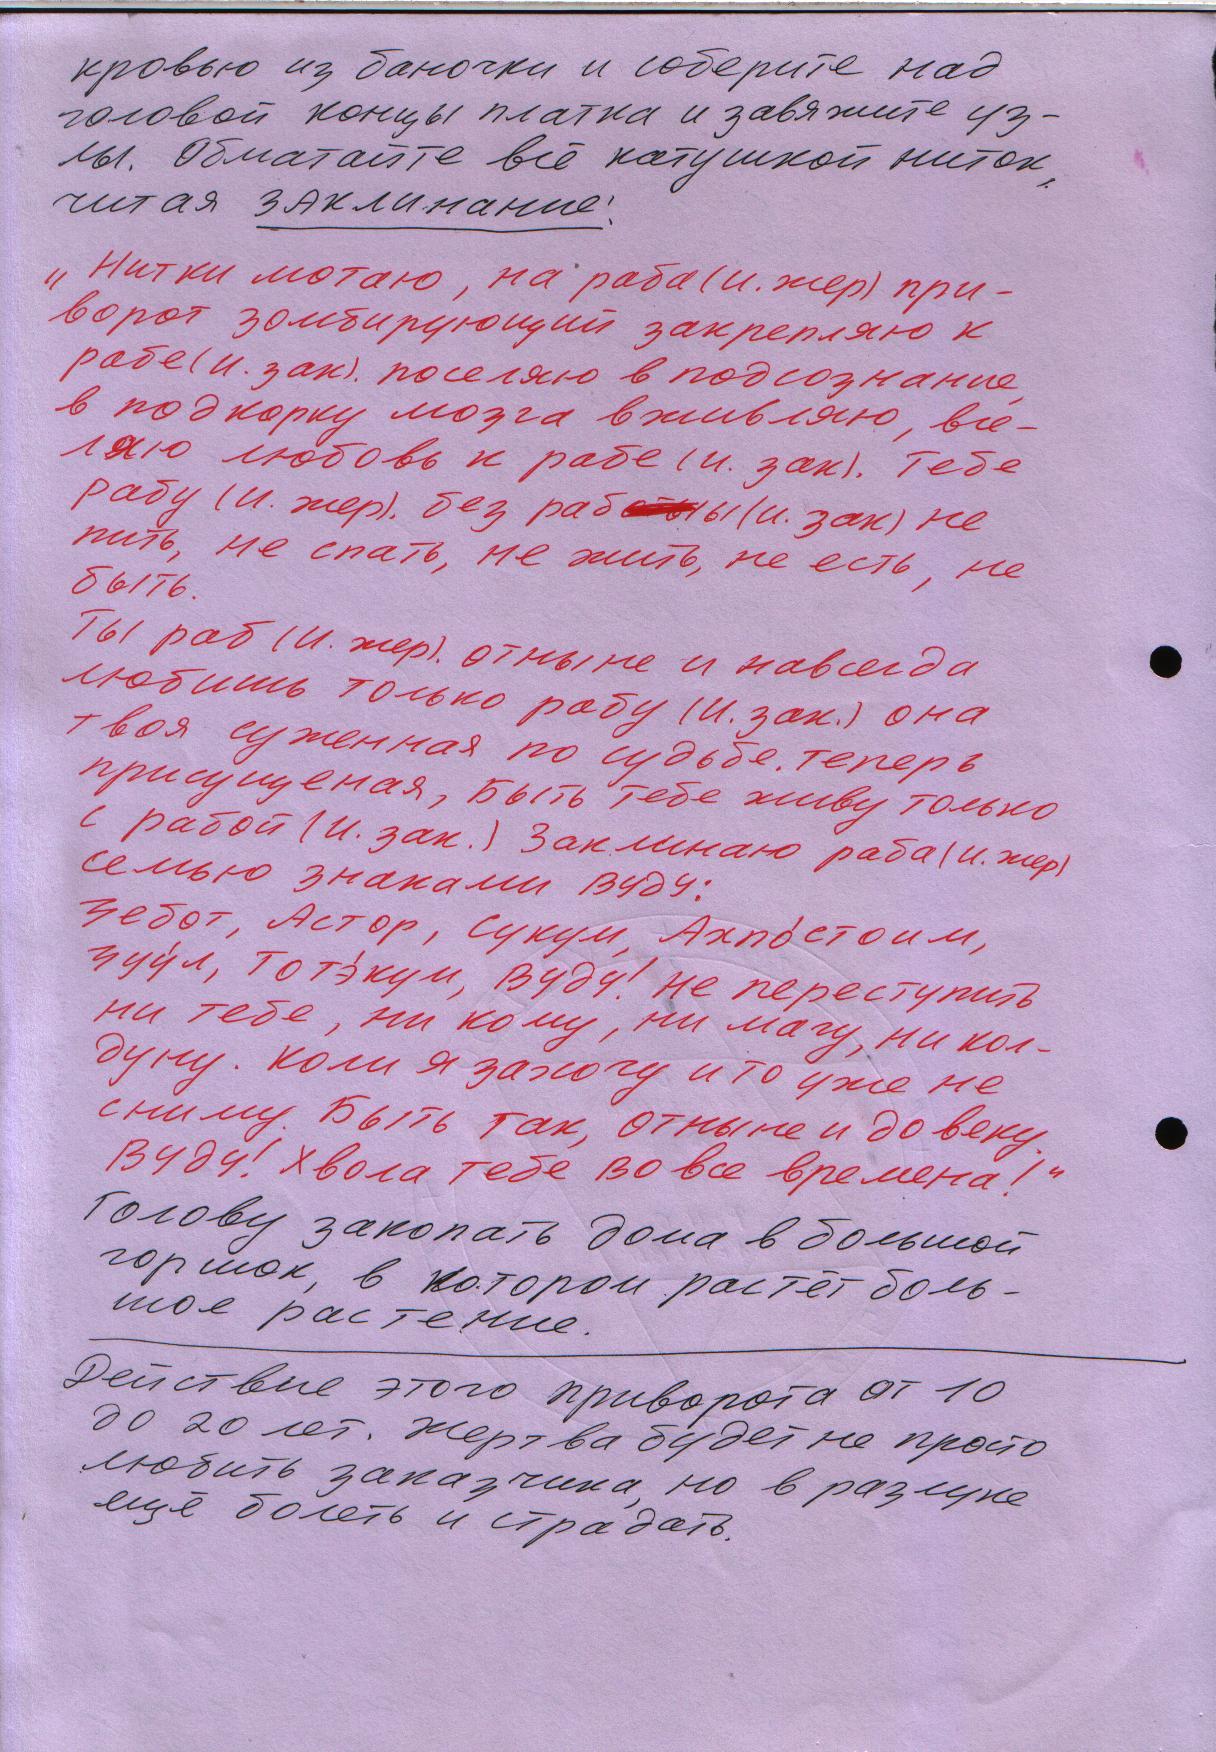 кровью из баночки и соберите над
головой концы платка и завяжите уз-
лы. Обматайте всё катушкой ниток,
читая заклинание:
„Нитки мотаю, на раба (и. жер) при-
ворот зомбирующий закрепляю к
рабе (и. зак). поселяю в подсознание,
в подкорку мозга вживляю, все-
ляю любовь к рабе (и. зак). Тебе
рабу (и. жер). без рабы (и. зак) не
пить, не спать, не жить, не есть, не
быть.
Ты раб (и. жер). отныне и навсегда
любишь только рабу (и. зак.) она
твоя суженная по судьбе. теперь
присущеная, Быть тебе живу только
с рабой (и. зак.) Заклинаю раба (и. жер)
семью знаками Вуду:
Зебот, Астор, Сукум, Ахпостоим,
Зуул, Тотэкум, Вуду! не переступить
ни тебе, ни кому, ни магу, ни кол-
дуну. Коли я захочу и то уже не
сниму. Быть так, отныне и до веку.
Вуду! Хвола тебе во все времена!"
Голову закопать дома в большой
горшок, в котором растёт боль-
шое растение.
Действие этого приворота от 10
до 20 лет. Жертва будет не просто
любить заказчика, но в разлуке
ещё болеть и страдать.